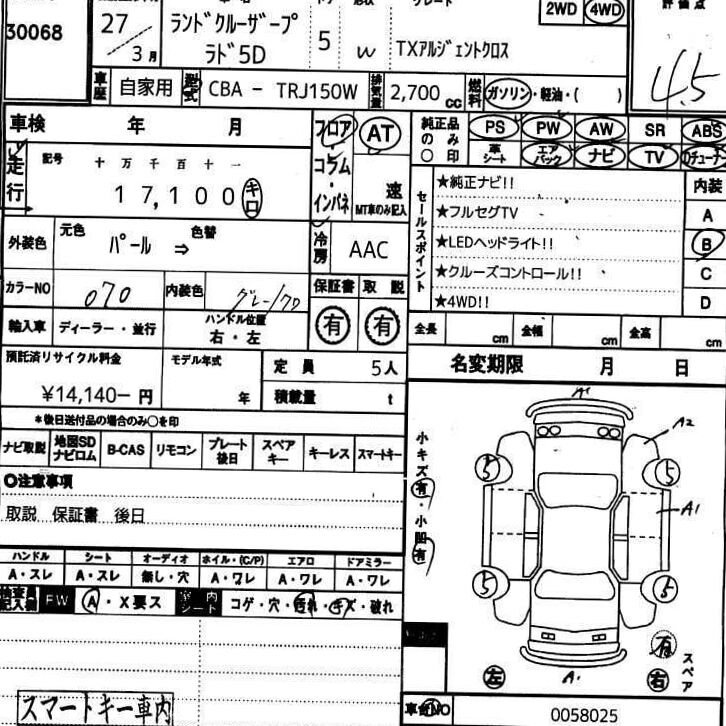 30068
27
/3月
ランドクルーザープ
ラド5D
5
W
TXアルジェントクロス
2WD 4WD
評価点
4.5
車歴 自家用 型式 CBA - TRJ150W 排気量 2,700 CC 燃料 ガソリン・軽油・( )
車検 年 月
フロア・コラム・インパネ
AT
速
MT車のみ記入
純正品のみ○印
PS PW AW SR ABS
革シート エアバック ナビ TV
走行 記号 十 万 千 百 十 一
17,100 キロ
セールスポイント
★純正ナビ!!
★フルセグTV
★LEDヘッドライト!!
★クルーズコントロール!!
★4WD!!
内装
A
B
C
D
外装色 元色 パール ⇒ 色替
冷房 AAC
カラーNO 070 内装色 グレー/クロ
保証書 取説
有 有
輸入車 ディーラー・並行 ハンドル位置 右・左
全長 cm 全幅 cm 全高 cm
預託済リサイクル料金 ¥14,140- 円
モデル年式 年
定員 5人
積載量 t
名変期限 月 日
*後日送付品の場合のみ○を印
ナビ取説 地図SDナビロム B-CAS リモコン プレート後日 スペアキー キーレス スマートキー
○注意事項
取説 保証書 後日
小キズ有・小凹有
A1
A2
A1
A1
5
5
5
5
左
右
有
スペア
ハンドル シート オーディオ ホイル・(C/P) エアロ ドアミラー
A・スレ A・スレ 無し・穴 A・ワレ A・ワレ A・ワレ
検査員記入欄 FW A・X要ス 内 シート コゲ・穴・汚れ・キズ・破れ
スマートキー車内
車台NO 0058025